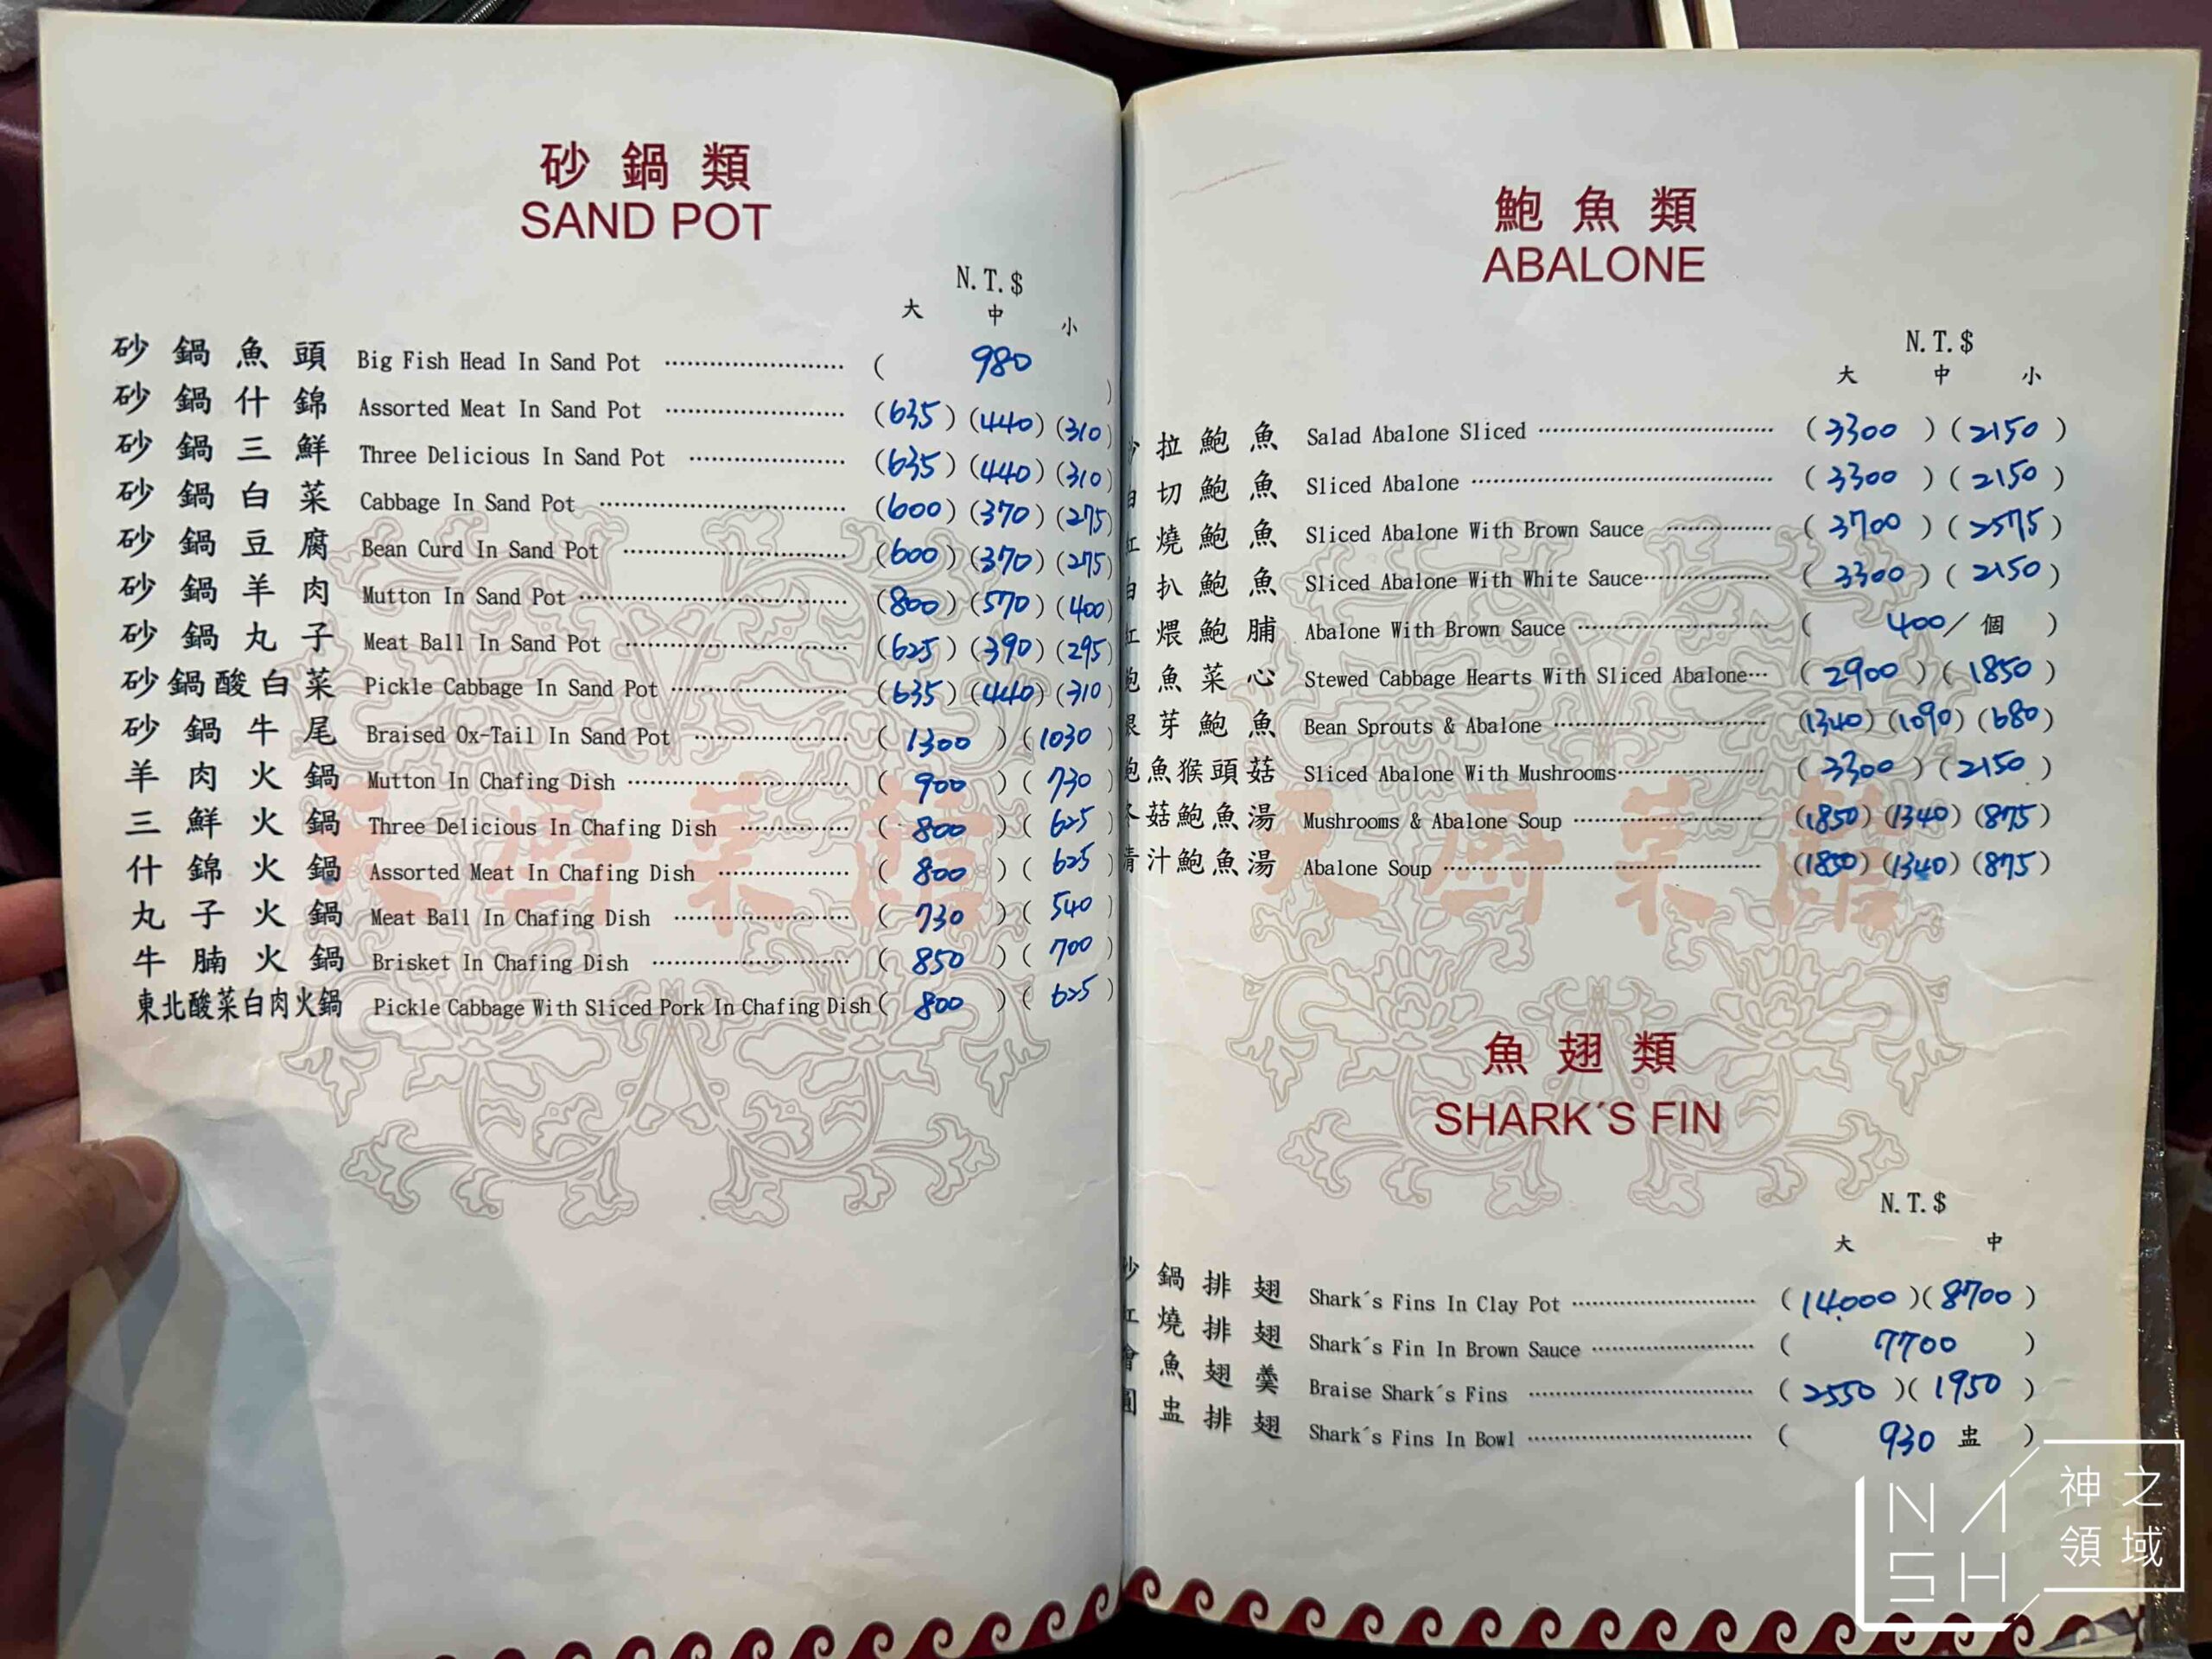 砂鍋類
SAND POT
N.T.$
大 中 小
砂鍋魚頭 Big Fish Head In Sand Pot ( 980 )
砂鍋什錦 Assorted Meat In Sand Pot (635) (440) (310)
砂鍋三鮮 Three Delicious In Sand Pot (635) (440) (310)
砂鍋白菜 Cabbage In Sand Pot (600) (370) (275)
砂鍋豆腐 Bean Curd In Sand Pot (600) (370) (275)
砂鍋羊肉 Mutton In Sand Pot (800) (570) (400)
砂鍋丸子 Meat Ball In Sand Pot (625) (390) (295)
砂鍋酸白菜 Pickle Cabbage In Sand Pot (635) (440) (310)
砂鍋牛尾 Braised Ox-Tail In Sand Pot (1300) (1030)
羊肉火鍋 Mutton In Chafing Dish (900) (730)
三鮮火鍋 Three Delicious In Chafing Dish (800) (625)
什錦火鍋 Assorted Meat In Chafing Dish (800) (625)
丸子火鍋 Meat Ball In Chafing Dish (730) (540)
牛腩火鍋 Brisket In Chafing Dish (850) (700)
東北酸菜白肉火鍋 Pickle Cabbage With Sliced Pork In Chafing Dish (800) (625)
天廚菜館
鮑魚類
ABALONE
N.T.$
大 中 小
拉鮑魚 Salad Abalone Sliced (3300) (2150)
切鮑魚 Sliced Abalone (3300) (2150)
燒鮑魚 Sliced Abalone With Brown Sauce (3700) (2575)
扒鮑魚 Sliced Abalone With White Sauce (3300) (2150)
煨鮑脯 Abalone With Brown Sauce ( 400/個 )
魚菜心 Stewed Cabbage Hearts With Sliced Abalone (2900) (1850)
芽鮑魚 Bean Sprouts & Abalone (1340) (1090) (680)
鮑魚猴頭菇 Sliced Abalone With Mushrooms (3300) (2150)
冬菇鮑魚湯 Mushrooms & Abalone Soup (1850) (1340) (875)
清汁鮑魚湯 Abalone Soup (1850) (1340) (875)
天廚菜館
魚翅類
SHARK´S FIN
N.T.$
大 中
鍋排翅 Shark´s Fins In Clay Pot (14000) (8700)
燒排翅 Shark´s Fin In Brown Sauce ( 7700 )
魚翅羹 Braise Shark´s Fins (2550) (1950)
盅排翅 Shark´s Fins In Bowl ( 930 盅 )
NASH
神之領域